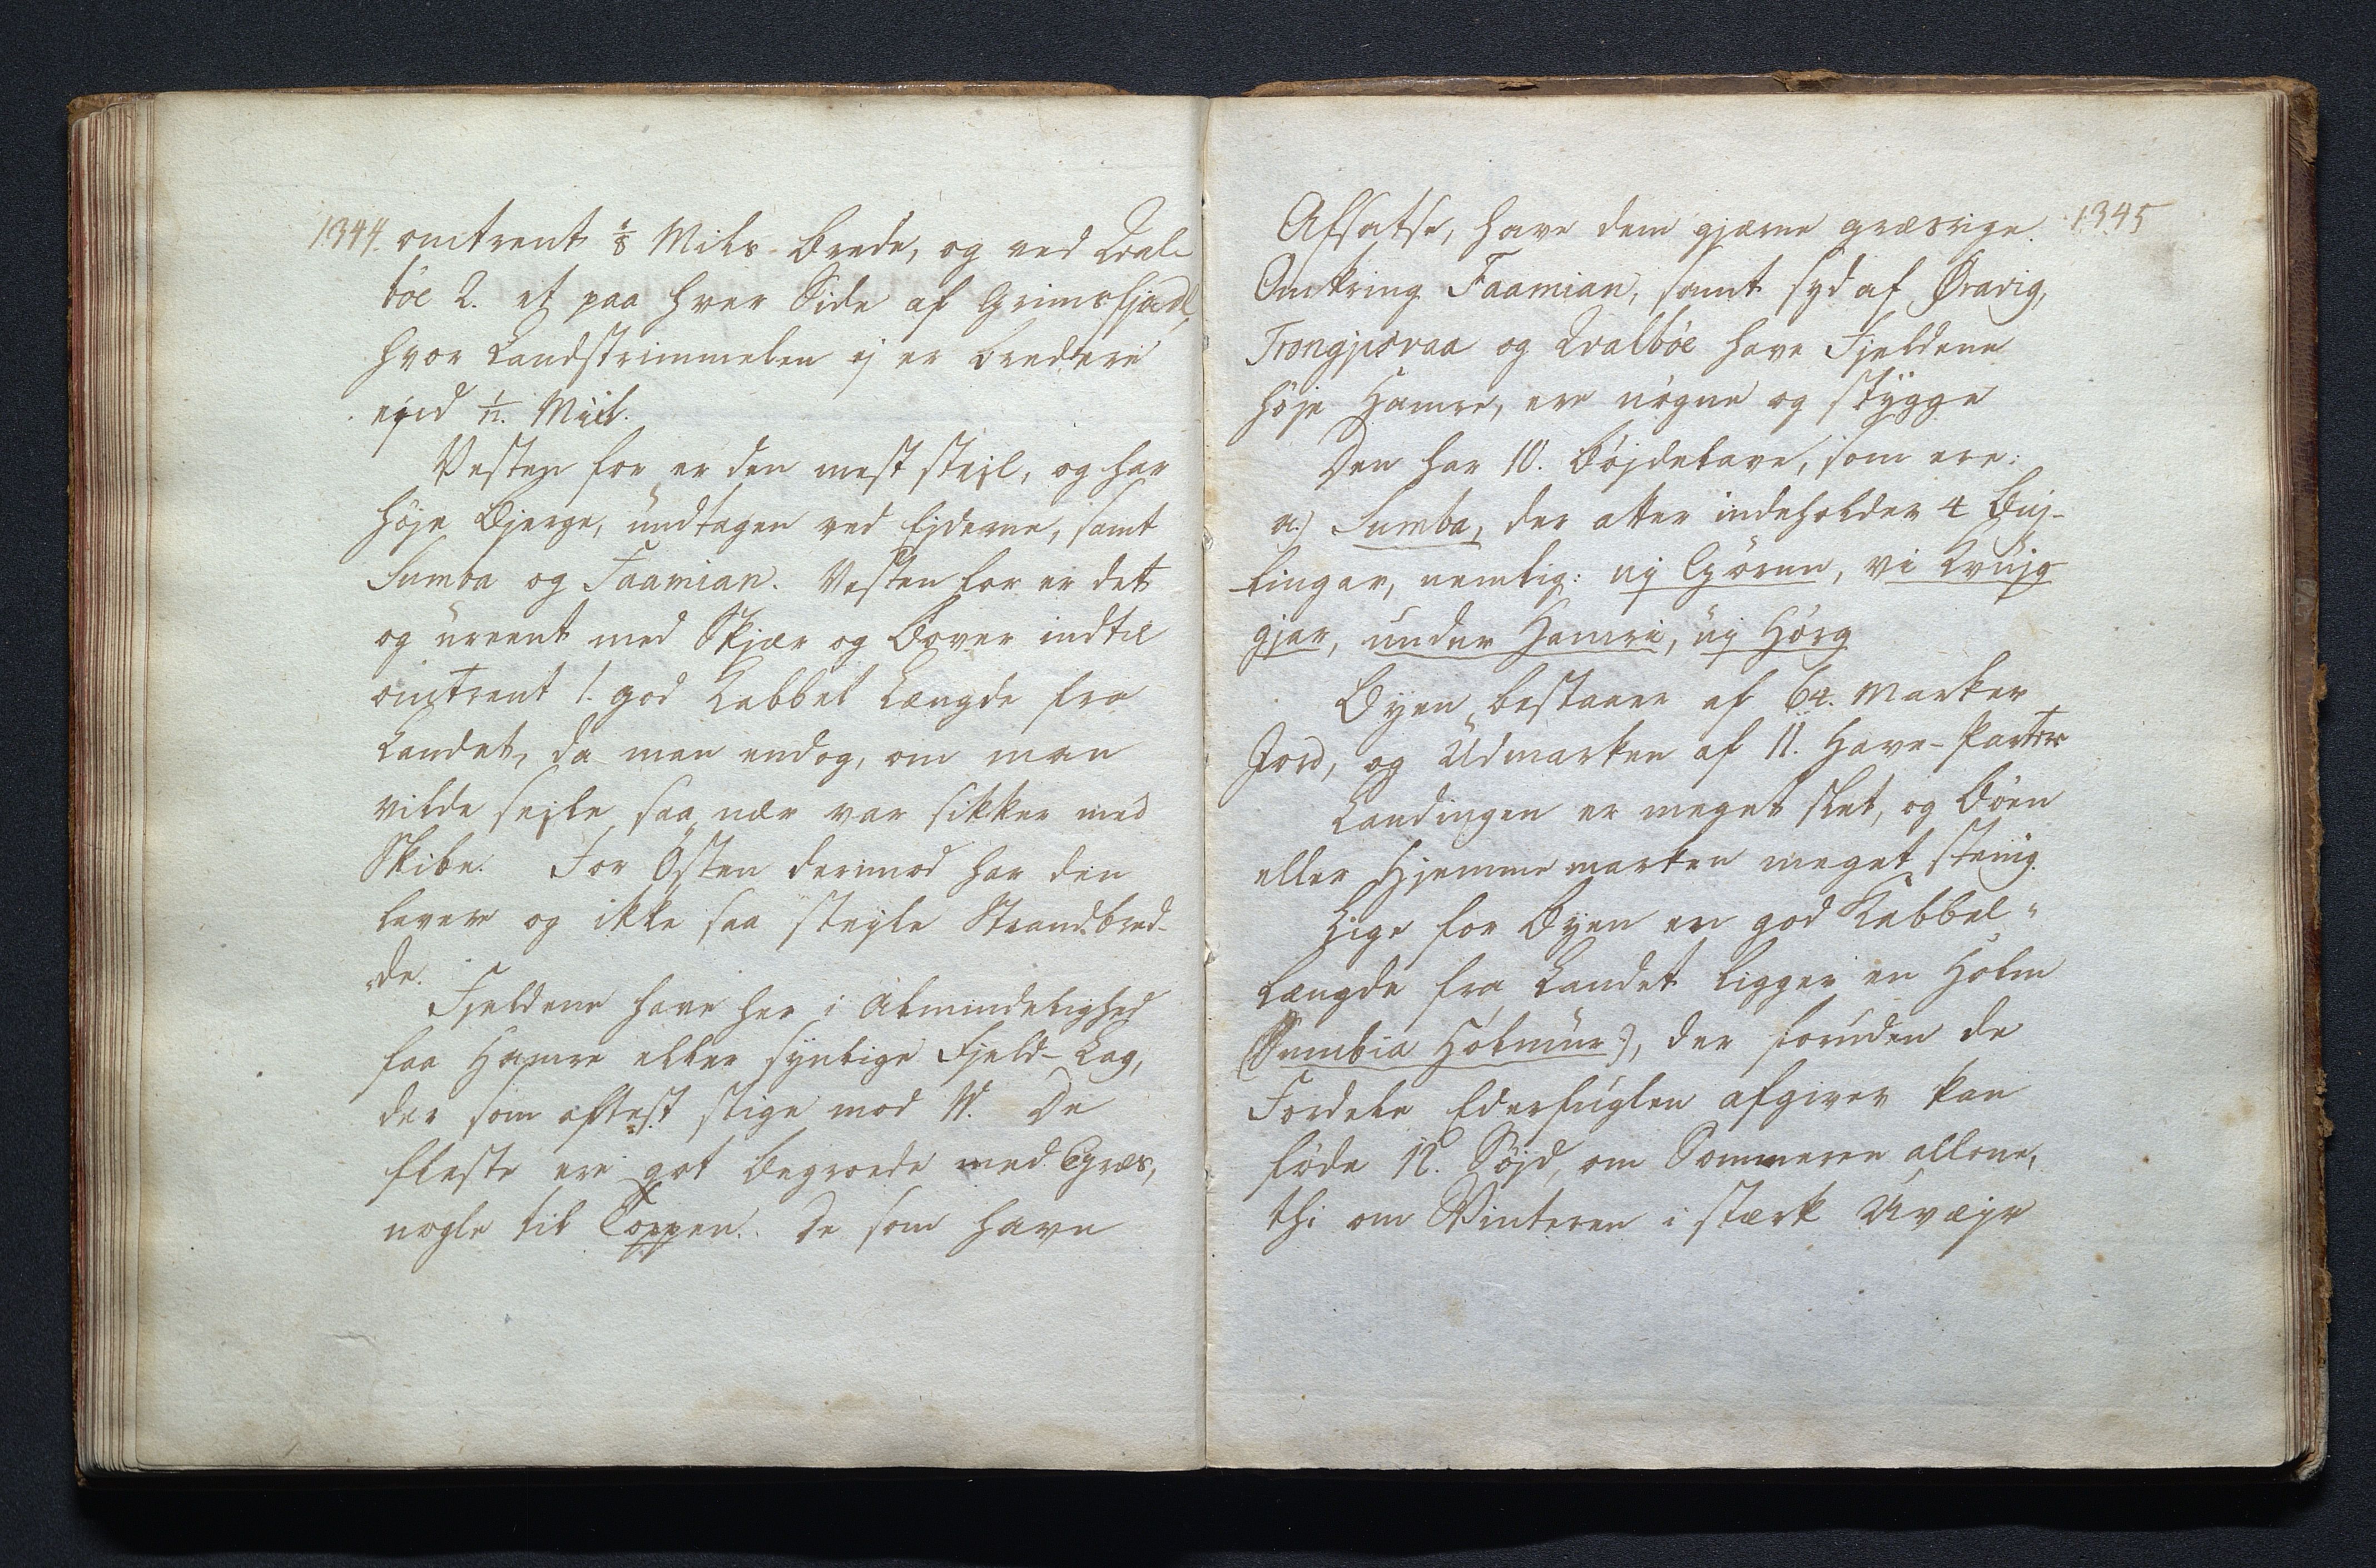 1344. omtrent ⅛ Miils Brede, og ved Qval-
böe 2. et paa hver Side af Grimsfjadl,
hvor Landstrimmelen ej er bredere
end 1/12. Miil.
Vesten for er den mest stejl, og har
höje Bjerge, undtagen ved Ejderne, samt
Sumba og Faamian. Vesten for er det
og ureent med Skjær og Bover indtil
omtrent 1. god Kabbel Længde fra
Landet, da man endog, om man
vilde sejle saa nær var sikker med
Skibe. For Östen derimod har den
lavere og ikke saa stejle Strandbred-
de.
Fjeldene have her i Almindelighed
faa Hamre eller synlige Fjeld-Lag,
der som oftest stige mod W. De
fleste ere got begroede med Græs,
nogle til Toppen. De som have
Afsatse, have dem gjærne græsrige. 1345
Omkring Faamian, samt syd af Øravig,
Trongjisvaa og Qvalböe have Fjeldene
höje Hamre, ere nögne og stygge
Den har 10. Böjdelave, som ere:
a.) Sumba, der atter indeholder 4 Buj-
lingar, nemlig: uj Gjörun, vi Kvujg
gjar, undur Hamri, uj Hörg
Byen bestaaer af 64. Marker
Jord, og Udmarken af 11. Have-Parter
Landingen er meget slet, og Böen
eller Hjemmemarken meget stenig.
Lige for Byen en god Kabbel-
Længde fra Landet ligger en Holm
(Sumbia Hólmur), der foruden de
Fordele Ederfuglen afgiver kan
föde 12. Söjd, om Sommeren allene,
thi om Vinteren i stærk Uvæjr